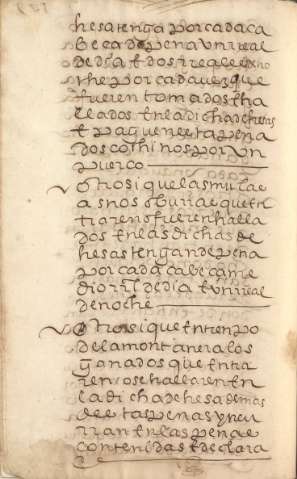 hesa tenga por cada ca
beça de pena vn rreal
de dia E dos rreales de no
che por cada vez que
fueren tomados E ha
llados En la dicha dehesa
E paguen esta pena
dos cochinos por vn
puerco
Otrosi que las mulas e
asnos o burras que En
traren o fueren halla
dos En las dichas de
hesas tengan de pena
por cada cabeça me
dio rreal de dia E vn rreal
de noche
Otrosi que En tienpo
de la montanera los
ganados que Entra
ren o se hallaren En
la dicha dehesa demas
de estas penas yncu
rran En las penas
contenidas E declara